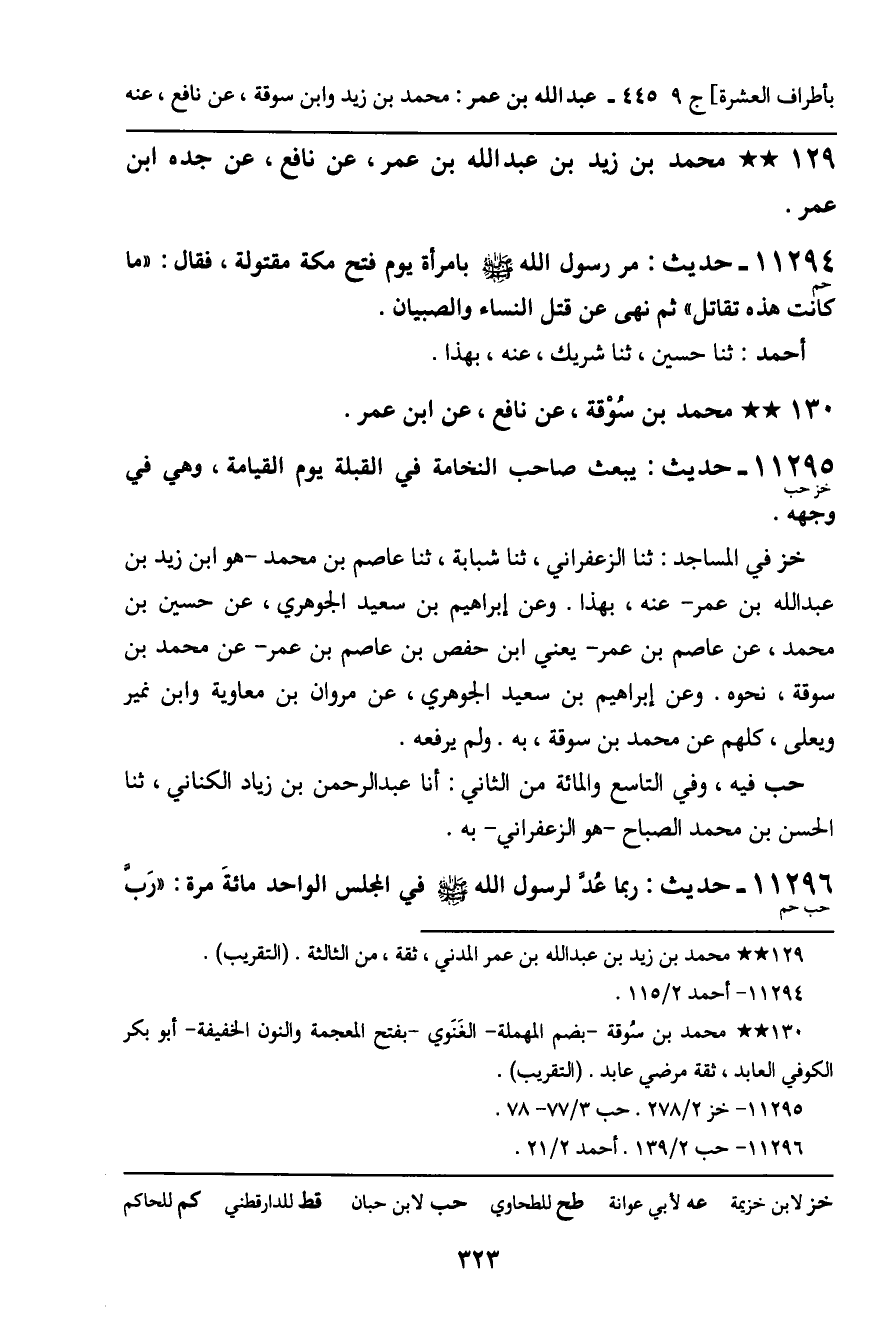 بأطراف العشرة] ج ٩ ٤٤٥ ـ عبدالله بن عمر : محمد بن زيد وابن سوقة ، عن نافع ، عنه
١٢٩ ★★ محمد بن زيد بن عبدالله بن عمر ، عن نافع ، عن جده ابن
عمر .
١١٢٩٤ ـ حديث : مر رسول الله ﷺ بامرأة يوم فتح مكة مقتولة ، فقال : «ما
حم
كانت هذه تقاتل» ثم نهى عن قتل النساء والصبيان .
أحمد : ثنا حسين ، ثنا شريك ، عنه ، بهذا .
١٣٠ ★★ محمد بن سُوْقة ، عن نافع ، عن ابن عمر .
١١٢٩٥ ـ حديث : يبعث صاحب النخامة في القبلة يوم القيامة ، وهي في
خز حب
وجهه .
خز في المساجد : ثنا الزعفراني ، ثنا شبابة ، ثنا عاصم بن محمد –هو ابن زيد بن
عبدالله بن عمر– عنه ، بهذا . وعن إبراهيم بن سعيد الجوهري ، عن حسين بن
محمد ، عن عاصم بن عمر– يعني ابن حفص بن عاصم بن عمر– عن محمد بن
سوقة ، نحوه . وعن إبراهيم بن سعيد الجوهري ، عن مروان بن معاوية وابن نمير
ويعلى ، كلهم عن محمد بن سوقة ، به . ولم يرفعه .
حب فيه ، وفي التاسع والمائة من الثاني : أنا عبدالرحمن بن زياد الكناني ، ثنا
الحسن بن محمد الصباح –هو الزعفراني– به .
١١٢٩٦ ـ حديث : ربما عُدَّ لرسول الله ﷺ في المجلس الواحد مائةَ مرة : «رَبَّ
حب حم
١٢٩★★ محمد بن زيد بن عبدالله بن عمر المدني ، ثقة ، من الثالثة . (التقريب) .
١١٢٩٤– أحمد ١١٥/٢ .
١٣٠★★ محمد بن سُوقة –بضم المهملة– الغَنَوي –بفتح المعجمة والنون الخفيفة– أبو بكر
الكوفي العابد ، ثقة مرضي عابد . (التقريب) .
١١٢٩٥– خز ٢٧٨/٢ . حب ٧٧/٣– ٧٨ .
١١٢٩٦– حب ١٣٩/٢ . أحمد ٢١/٢ .
خز لابن خزيمة عه لأبي عوانة طح للطحاوي حب لابن حبان قط للدارقطني كم للحاكم
٣٢٣